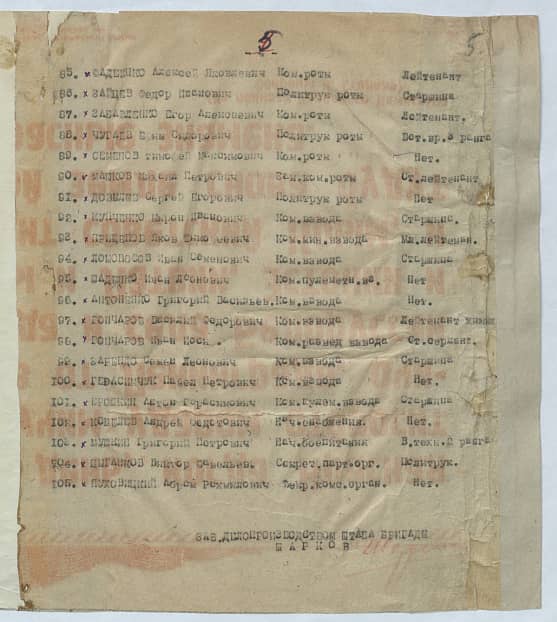 8
5.
85. х ЗАДЕЙКО Алексей Яковлевич Ком.роты Лейтенант
86. х ЗАЙЦЕВ Федор Иванович Политрук роты Старшина
87. х ЗАБАВЛЕНКО Егор Алексеевич Ком.роты Лейтенант.
88. х ЧУГАЕВ Сидорович Политрук роты Вет.вр.3 ранга
89. х СЕМЕНОВ Тимофей Максимович Ком.роты Нет.
90. х Петрович Зам.ком.роты Ст.лейтенант
91. х Сергей Егорович Политрук роты Нет
92. х Иванович Ком.взвода Старшина.
93. х Яков Ком.мин.взвода Мл.лейтенан.
94. х ЛОМОНОСОВ Иван Семенович Ком.взвода Старшина
95. х Иван Леонович Ком.пулеметн.вз. Нет
96. х АНТОНЕНКО Григорий Васильев. Ком.взвода Нет.
97. х ГОНЧАРОВ Василий Федорович Ком.взвода Лейтенант
98. х ГОНЧАРОВ Иван Ком.развед взвода Ст.сержант.
99. х Семен Леонович Ком.взвода Старшина
100. х ГЕРАСИМЧИК Павел Петрович Ком.взвода Нет.
101. х ЕРОШКИН Антон Герасимович Ком.пулем.взвода Старшина
102. х КОБЕЛЕВ Андрей Федотович Нач.снабжения. Нет.
103. х Григорий Петрович Нач.боепитания В.техн.2 ранга
104. х ЦЫГАНКОВ Виктор Савельев. Секрет.парт.орг. Политрук.
105. х ПУХОВИЦКИЙ Абрам Рахмилович Секр.комс.орган. Нет.
ЗАВ.ДЕЛОПРОИЗВОДСТВОМ ШТАБА БРИГАДЫ
ШАРКОВ